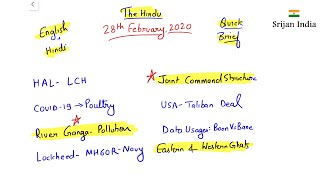 The Hindu
28th February, 2020
English + Hindi
Quick Brief
Srijan India
HAL- LCH
Joint Command Structure
COVID-19 → Poultry
USA- Taliban Deal
River Ganga- Pollution
Data Usage: Boon Vs Bane
Lockheed- MH60R-Navy
Eastern & Western Ghats